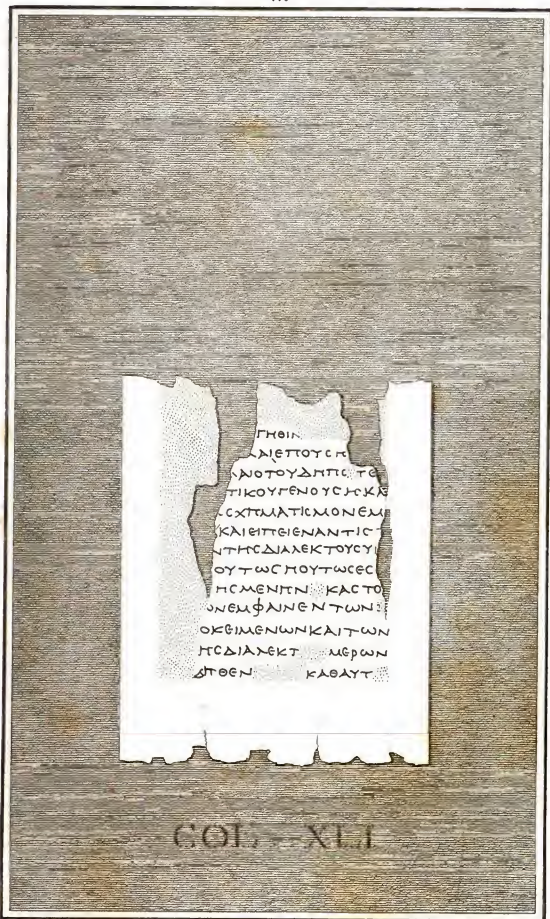 ΓΗΘΙΝ
ΑΙΕΠΟΥϹΗ
ΑΙΟΤΟΥΔΗΠϹ ΤΕ
ΤΙΚΟΥΓΕΝΟΥϹΗΚΑ
ϹΧΗΜΑΤΙϹΜΟΝΕΜ
ΚΑΙΕΙΠΕΙΕΝΑΝΤΙϹΤ
ΝΤΗϹΔΙΑΛΕΚΤΟΥϹΥΙ
ΟΥΤΩϹΗΟΥΤΩϹΕϹ
ΗϹΜΕΝΠΝ ΚΑϹΤΟ
ΟΝΕΜΦΑΙΝΕΝΤΩΝ
ΟΚΕΙΜΕΝΩΝΚΑΙΤΩΝ
ΗϹΔΙΑΛΕΚΤ ΜΕΡΩΝ
ΔΠΘΕΝ ΚΑΘΑΥΤ
COL XLI